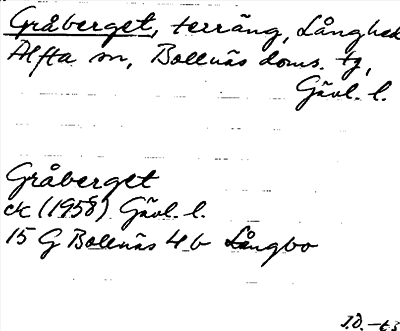 Gråberget, terräng, Långhed
Alfta sn, Bollnäs doms. tg,
Gävl. l.
Gråberget
ek (1958) Gävl. l.
15 G Bollnäs 4 b Långbo